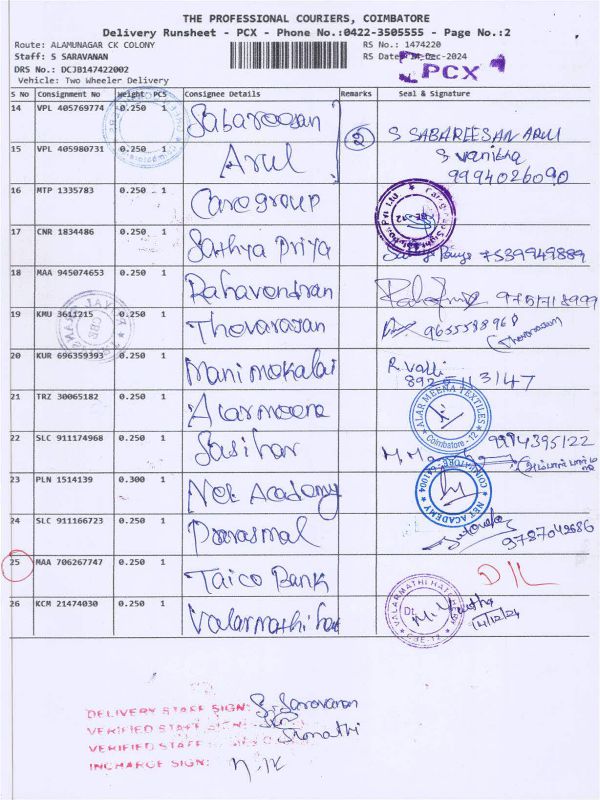 THE PROFESSIONAL COURIERS, COIMBATORE
Delivery Runsheet - PCX - Phone No.:0422-3505555 - Page No.:2
Route: ALAMUNAGAR CK COLONY RS No.: 1474220
Staff: S SARAVANAN RS Date: -Dec-2024
DRS No.: DCJB147422002 PCX
Vehicle: Two Wheeler Delivery
S No Consignment No Weight PCS Consignee Details Remarks Seal & Signature
14 VPL 405769774 0.250 1 Sabareesan S SABAREESAN ARUL
15 VPL 405980731 0.250 1 Arul 2 S Vanitha
9994026090
16 MTP 1335783 0.250 1 Caregroup
17 CNR 1834486 0.250 1 Sathya Priya 7539949889
18 MAA 945074653 0.250 1 Rahavendran
19 KMU 3611215 0.250 1 Thevarasan
20 KUR 696359393 0.250 1 Manimekalai R. Valli
21 TRZ 30065182 0.250 1 Alarmeena ALAR MEENA TEXTILES Coimbatore-12
22 SLC 911174968 0.250 1 Sasihar 9994395122
23 PLN 1514139 0.300 1 Net Academy NET ACADEMY COIMBATORE 641004
24 SLC 911166723 0.250 1 Parasmal 9787042686
25 MAA 706267747 0.250 1 Taico Bank D/L
26 KCM 21474030 0.250 1 Valarmathi 14/12/24
DELIVERY STAFF SIGN: S. Saravanan
VERIFIED STAFF SIGN:
VERIFIED STAFF
INCHARGE SIGN: